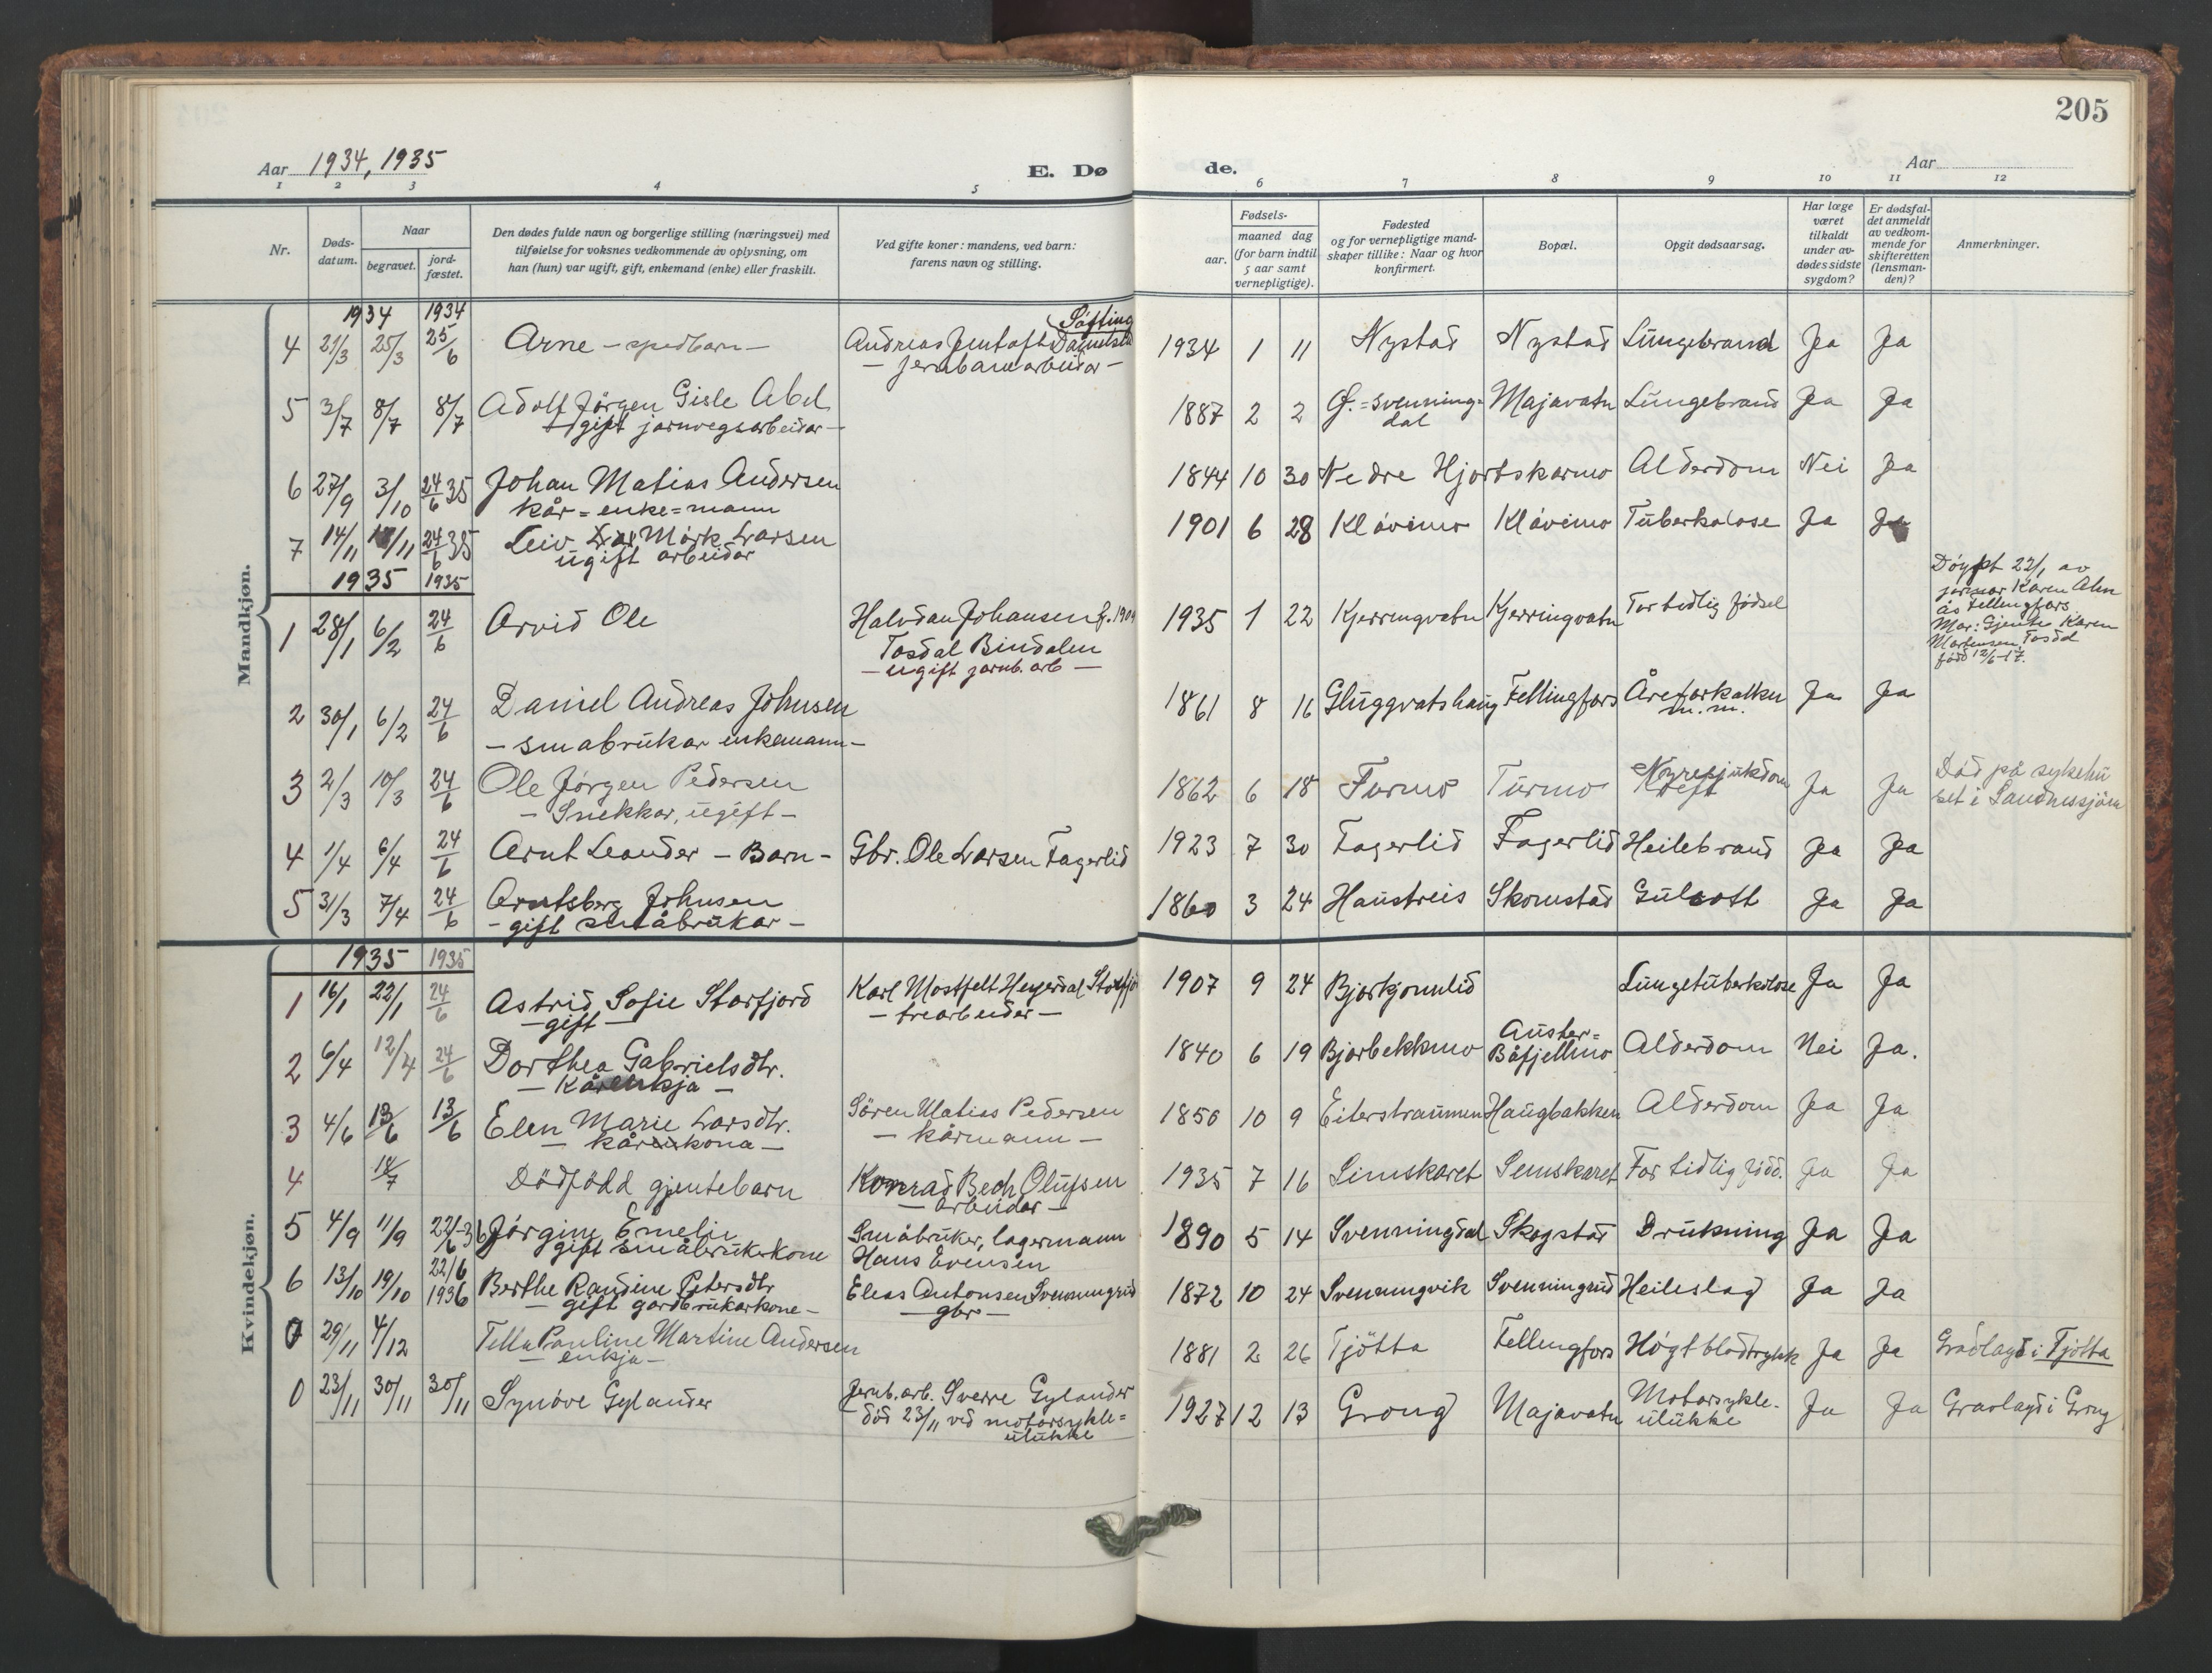 205
Aar 1934, 1935
E. Dø
de.
Aar
1 2 3 4 5 6 7 8 9 10 11 12
Nr.
Døds-
datum.
Naar
begravet.
jord-
fæstet.
Den dødes fulde navn og borgerlige stilling (næringsvei) med
tilføielse for voksnes vedkommende av oplysning, om
han (hun) var ugift, gift, enkemand (enke) eller fraskilt.
Ved gifte koner: mandens, ved barn:
farens navn og stilling.
Fødsels-
aar.
maaned dag
(for barn indtil
5 aar samt
vernepligtige).
Fødested
og for vernepligtige mand-
skaper tillike: Naar og hvor
konfirmert.
Bopæl.
Opgit dødsaarsag.
Har læge
været
tilkaldt
under av-
dødes sidste
sygdom?
Er dødsfal-
det anmeldt
av vedkom-
mende for
skifteretten
(lensman-
den)?
Anmerkninger.
Mandkjøn.
1934 1934
4 21/3 25/3 25/6 Arne - spedbarn - Andreas Jentoft 1934 1 11 Nystad Nystad Lungebrand Ja Ja
Søfting
- jernbanearbeidar -
5 3/7 8/7 8/7 Adolf Jörgen Gisle Abel 1887 2 2 Ø.=Svenning= Majavatn Lungebrand Ja Ja
gift jarnvegsarbeidar - dal
6 27/9 3/10 24/6 35 Johan Matias Andersen 1844 10 30 Nedre Hjortskarmo Alderdom Nei Ja
kår=enke=mann
7 14/11 /11 24/6 35 Leiv Mörk Larsen 1901 6 28 Klåvimo Klåvimo Tuberkolose Ja Ja
ugift arbeidar
1935 1935
1 28/1 6/2 24/6 Arvid Ole Halvdan Johansen f. 1909 1935 1 22 Kjerringvatn Kjerringvatn For tidlig födsel
Tosdal Bindalen
- ugift jarnb. arb -
Döypt 22/1 av
jormor Karen
ås Fellingfors
Mor: Gjente Karen
Martensen Tosdal
född 12/6-17.
2 30/1 6/2 24/6 Daniel Andreas Johnsen 1861 8 16 Gluggvatshaug Fellingfors Åreforkalkn Ja Ja
- småbrukar enkemann - m. m.
3 2/3 10/3 24/6 Ole Jörgen Pedersen 1862 6 18 Furmo Turmo Nyresjukdom Ja Ja Död på sykehu
- Snekkar, ugift - Kreft set i Sandnessjöen
4 1/4 6/4 24/6 Arnt Leander - Barn - Gbr. Ole Larsen Fagerlid 1923 7 30 Fagerlid Fagerlid Heilebrand Ja Ja
5 31/3 7/4 24/6 Arntsberg Johnsen 1860 3 24 Haustreis Skomstad Gulsott Ja Ja
- gift småbrukar -
Kvindekjøn.
1935 1935
1 16/1 22/1 24/6 Astrid Sofie Storfjord Karl Mostfelt Heyerdal Storfjo 1907 9 24 Bjortjonnlid Lungetuberkolose Ja Ja
- gift - - trearbeider -
2 6/4 12/4 24/6 Dorthea Gabrielsdtr. 1840 6 19 Bjorbekkmo Auster= Alderdom Nei Ja.
- Kårenkja - Båfjellmo
3 4/6 13/6 13/6 Elen Marie Larsdtr. Sören Matias Pedersen 1850 10 9 Eiterstraumen Haugbakken Alderdom Ja Ja
- kårkona - - kårmann -
4 18/7 Dödfödd gjentebarn Konrad Bech Olufsen 1935 7 16 Simskaret Simskaret For tidlig född. Ja Ja
- arbeidar -
5 4/9 11/9 22/6-36 Jörgine Emelie Småbruker, lagermann 1890 5 14 Svenningdal Skogstad Drukning Ja Ja
gift småbrukerkone Hans Evensen
6 13/10 19/10 22/6 1936 Berthe Randine Petersdtr Elias Antonsen Svenningrud 1872 10 24 Svenningvik Svenningrud Heileslag Ja Ja
- gift gardbrukarkone - - gbr -
0 29/11 4/12 Tella Pauline Martine Andersen 1881 2 26 Tjötta Fellingfors Högt blodtrykk Ja Ja Gravlagd i Tjötta
- enkja -
0 23/11 30/11 30/11 Synöve Gylander Jernb.arb. Sverre Gylander 1927 12 13 Grong Majavatn Motorsykle- Ja Ja Gravlagd i Grong
död 23/11 ved motorsykle= ulukke
ulukke